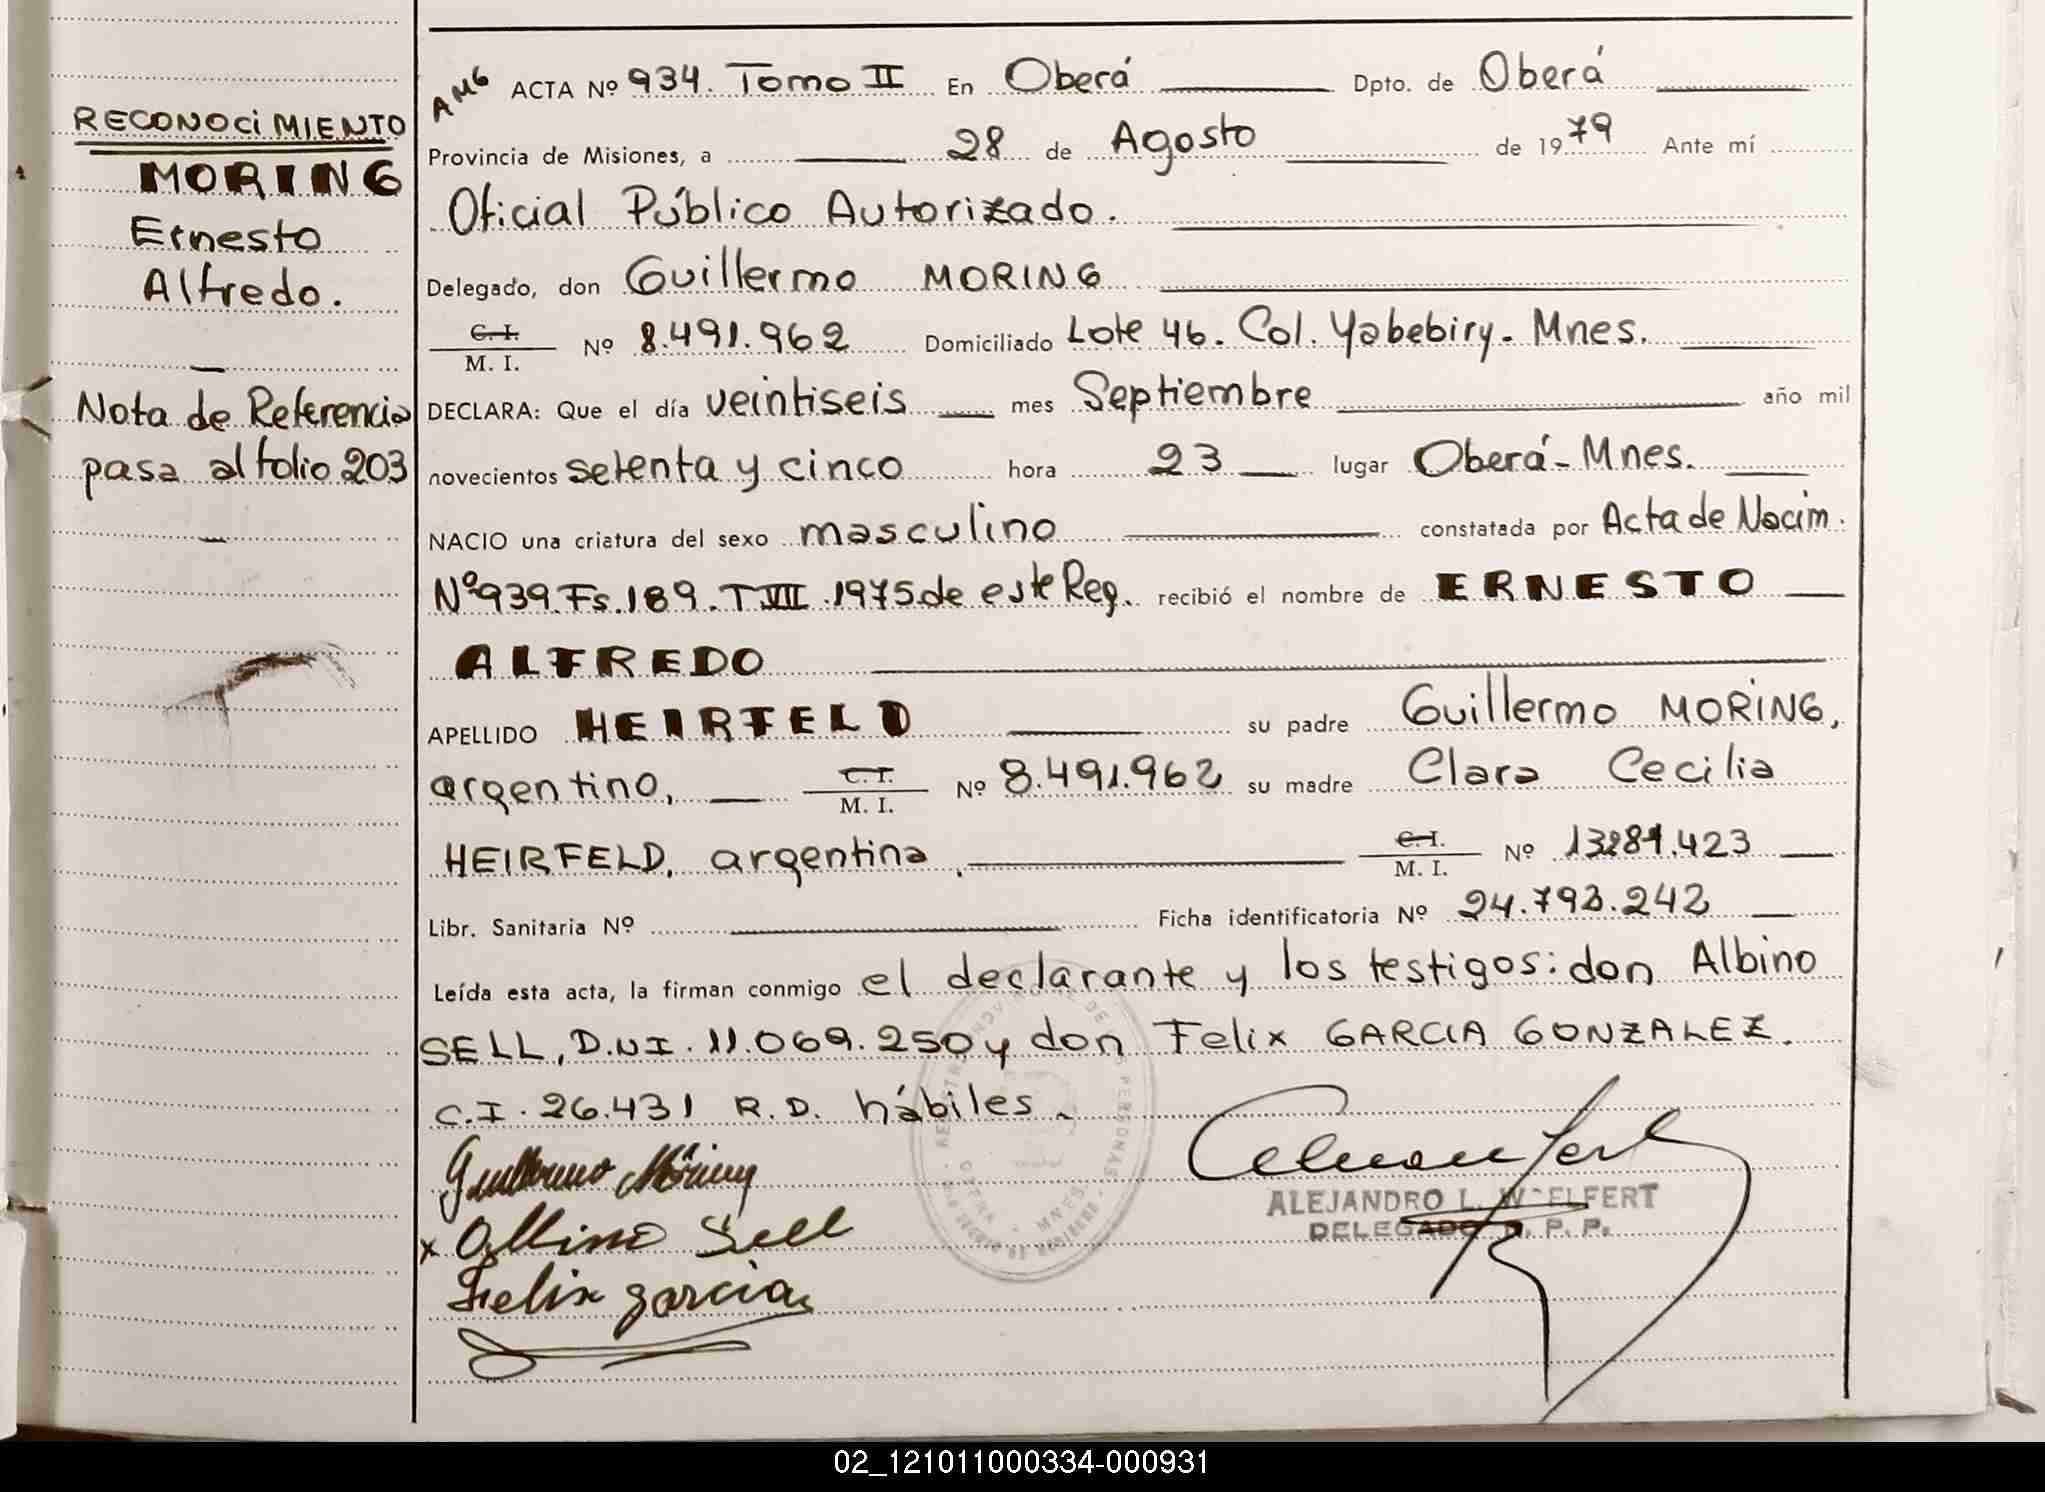 RECONOCIMIENTO
MORING
Ernesto
Alfredo.
Nota de Referencia
pasa al folio 203
AMG ACTA Nº 934. Tomo II En Oberá Dpto. de Oberá
Provincia de Misiones, a 28 de Agosto de 1979 Ante mí
Oficial Público Autorizado.
Delegado, don Guillermo MORING
C. I.
M. I. Nº 8.491.962 Domiciliado Lote 46. Col. Yabebiry. Mnes.
DECLARA: Que el día veintiseis mes Septiembre año mil
novecientos setenta y cinco hora 23 lugar Oberá-Mnes.
NACIO una criatura del sexo masculino constatada por Acta de Nacim.
Nº939.Fs.189.TVII.1975.de este Reg. recibió el nombre de ERNESTO
ALFREDO
APELLIDO HEIRFELD su padre Guillermo MORING,
argentino, C. I.
M. I. Nº 8.491.962 su madre Clara Cecilia
HEIRFELD, argentina, C. I.
M. I. Nº 13.423
Libr. Sanitaria Nº Ficha identificatoria Nº 24.793.242
Leída esta acta, la firman conmigo el declarante y los testigos: don Albino
SELL, D.N.I. 11.069.250 y don Felix GARCIA GONZALEZ.
C.I. 26.431 R.D. hábiles.
Guillermo Möring
x Albino Sell
Felix garcia
ALEJANDRO L. WOELFERT
DELEGADO R. P. P.
02_121011000334-000931